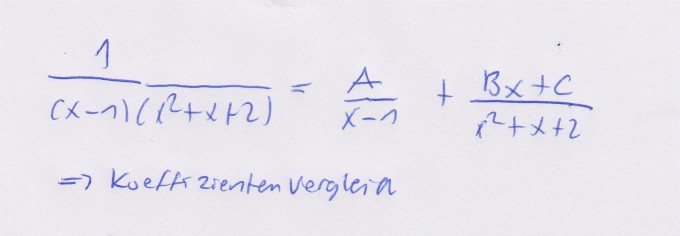 1/((x-1)(x²+x+2)) = A/(x-1) + (Bx+C)/(x²+x+2)
=> Koeffizientenvergleich